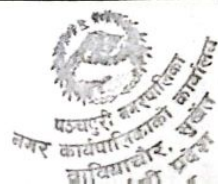 पञ्चपुरी नगरपालिका
नगर कार्यपालिकाको कार्यालय
बाबियाचौर, सुर्खेत
प्रदेश